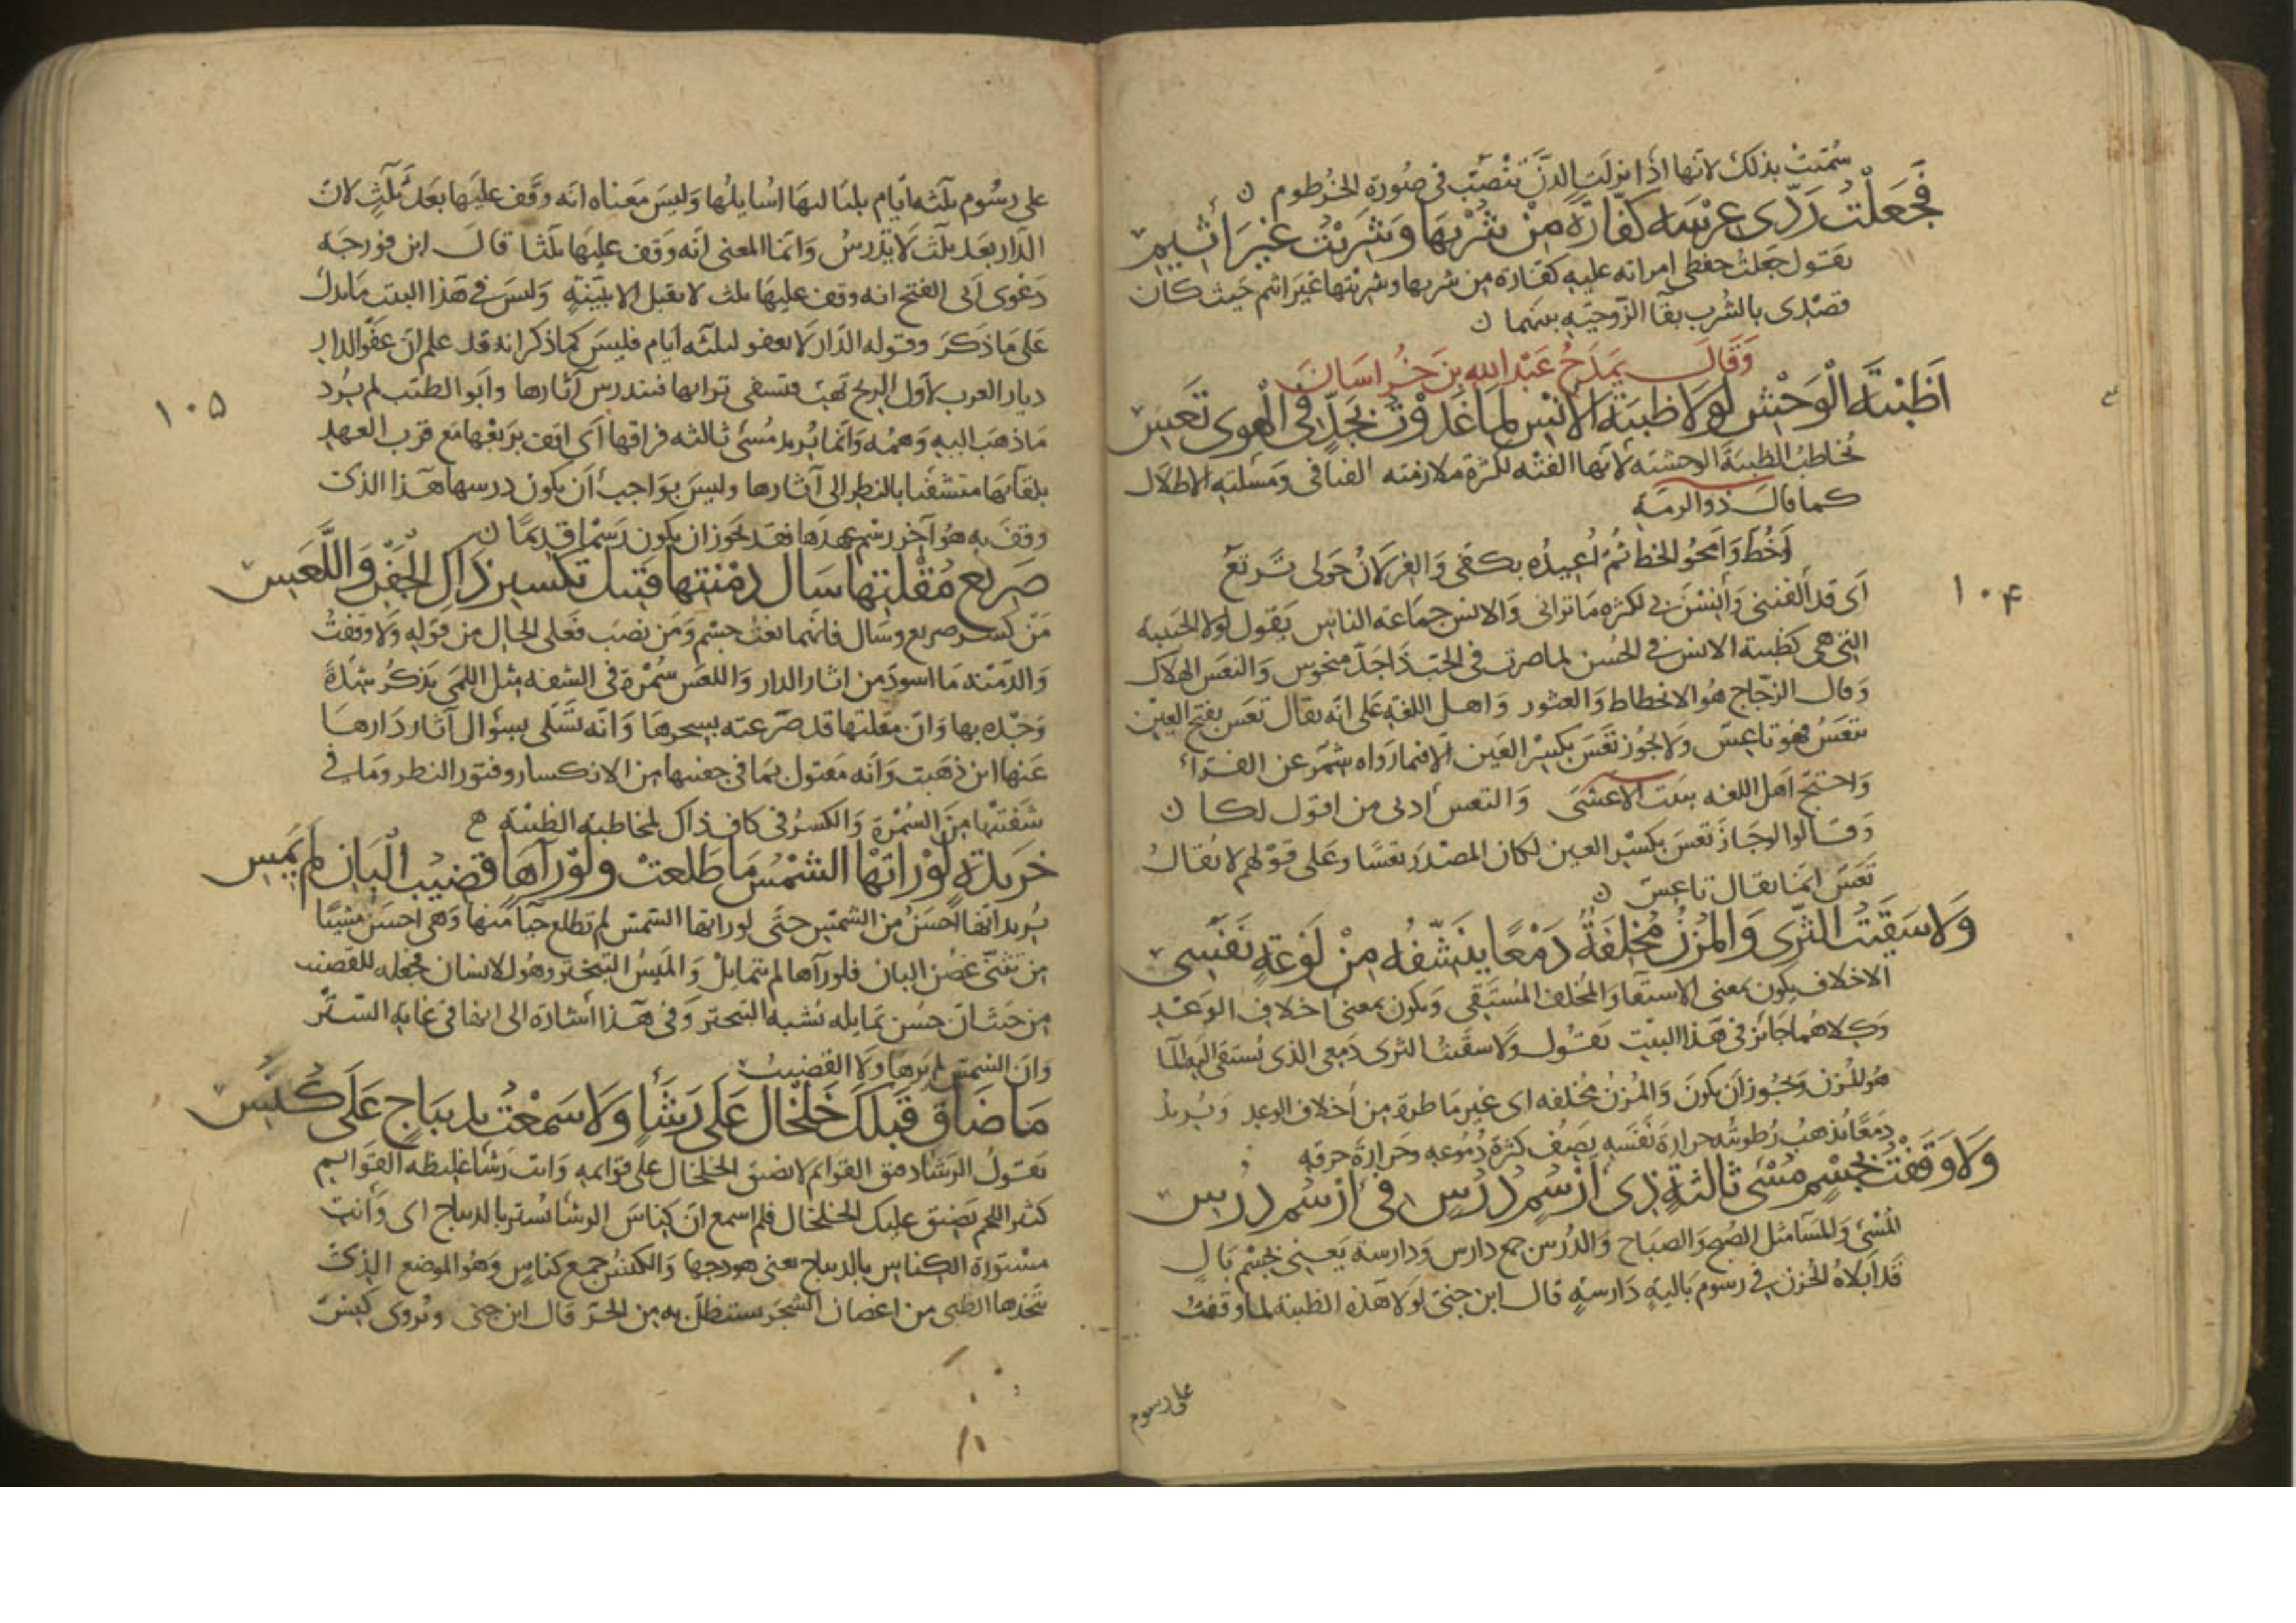 سُمّيَتْ بذلك لانّها اذا نزلَت الدَّنَّ تنْصَبّ فى صُورَة الخُرطوم ن
فَجَعَلْتُ رَدّى عِرْسَه كَفّارَةً مِنْ شُرْبِهَا وَشَرِبْتُ غيْرَ أَثيمِ
يقول جَعلتُ حفظى امراته عليه كفّارة من شربها وشربتها غيرَ اثم حَيث كان
قصْدى بالشُرب بقآ الزّوجيّه بينهما ن
وَقَالَ يَمدَحُ عَبْدَ الله بنَ خُراسَانَ
اَظبْيَةَ الْوَحْشِ لَولَا ظبْيَةُ الاَنَسِ لمَا غَدَوْتُ بِجَدٍّ فى الْهوى تَعِسِ
يُخاطبُ الظبيَة الوحشيّه لأنّها الفتْه لكثرة ملازمته الفيافى ومَسْئلتِه الاطلَال
كما قال ذو الرمّه
أخُطّ وَأَمحُو الخطّ ثُمّ أُعِيدُه بكفّى وَالغِزلَانُ حَولى تَرتَعُ
اَى قد ألفننى وَأنِسْنَ بى لكثرة مَا ترانى وَالانس جمَاعَة الناس يَقول لولا الحَبيبه
التى هى كظبية الانس فى الحُسن لما صرت فى الحبّ ذَا جَدّ منحوس وَالتعَس الهلَاك
وَقال الزجّاج هُو الانحطاط وَالعثور وَاهل اللغةِ عَلى انّه يقال تعَس بفتح العيْن
يتعَسُ فهُوَ تاعِسٌ وَلا يجُوز تعَسَ بكسْر العَين الّا فيما رَوَاه شَمّر عن الفرّاء
وَاحتجّ اهَل اللغه ببيت الاعشَى وَالتعس أدنى من اقول لكا ن
وَقالوا لو جَاز تعسَ بكسْر العين لكان المصْدَر تعسًا وعَلى قوْلهم لا يُقال
تَعَسٌ انّما يقال تاعِسٌ ن
وَلَا سَقَيْتُ الثَّرَى وَالْمُزْنُ مُخْلِفَةٌ دَمْعًا يُنَشِّفُه مِنْ لَوْعَةٍ نَفَسِى
الاخلاف يكون بمعنى الاستقآ وَالمُخلف المُستَقى وَيكون بمعنى اخلاف الوَعْد
وَكلاهُما جَائز فى هَذا البيْت يقول وَلا سقَيتُ الثرى دَمعى الذى
هو للمُزن وَيجُوز أن يكونَ وَالمُزنُ مخُلفه اى غير مَاطرة من أخلاف الوعد وَيُريد
دَمعًا تذهبُ رُطوبتُه حرارَة نَفَسِه يَصفُ كثرَة دُمُوعِه وحَرارةَ حرقه
وَلَا وَقَفْتُ بِجِسْمٍ مُسْىَ ثَالثَةٍ ذِى أَرْسُمٍ دُرُسٍ فى أَرْسُمٍ دُرُسِ
المُسْى وَالمسَآ مثل الصُبح وَالصبَاح وَالدُرس جمع دارس وَدارسة يَعنى بجسْم بَالٍ
قَد أَبلَاهُ الحُزن فى رسوم بَاليةٍ دَارسةٍ قال ابن جنىّ لولَا هَذه الظبية لما وقفتُ
على رسوم
١٠٤
على رسُوم ثلثه أيام بليَاليهَا اُسايلُها وَليسَ مَعناه انّه وقَف عليَها بعَد ثَلَثٍ لانّ
الدّار بعَد ثلث لَا تدرسُ وَانمّا المعنى انّه وَقف عليهَا ثلثا قالَ ابن فورجَه
دَعْوى أبى الفتح انه وقف عليهَا ثلث لا يقبل الا ببَيّنةٍ وَليسَ فى هَذا البيت مَا يدل
عَلى مَا ذكَر وقوله الدّار لَا تعفو لثلثه أيام فليسَ كما ذكر انه قد علم انّ عفو الدار
ديار العرب لأوّل الريح تهبّ فتسفى ترابها فتندرس آثارها وَأبو الطيّب لم يُرد
مَا ذهَب اليه وَهمُه وَانما يُريد مُسْى ثالثه فراقها أى اقف برَبعْها مَع قرب العهد
بلقآئهَا متشفّيا بالنظر الى آثارها وليسَ بوَاجب أن يكون درسها هَذا الذى
وقفَ به هُو آخر رسْم عهدَها فقد يجوز ان يكون رَسْما قديمًا ن
صَرِيعَ مُقْلَتِهَا سَآلَ دِمْنَتِهَا قتيلَ تكسيرِ ذَاكِ الْجَفْنِ وَاللَّعَسِ
مَنْ كسر صريع وسَال فانهما نعتُ جسْم وَمَن نصَب فعَلى الحال من قوله وَلا وقفتُ
وَالدّمْنه مَا اسودّ من اثار الدار وَاللعَس سُمْرة فى الشفه مثل اللمَى يَذكرُ شدّة
وَجْده بها وَانّ مقلتها قد صَرّعته بسحرهَا وَانّه تسَلّى بسؤال آثار دَارهَا
عَنها اين ذهَبت وَأنّه مَقتول بمَا فى جفنيها من الانكسار وفتور النظر وَمَا فى
شفَتيْها مِنَ السُمْرَة وَالكسرُ فى كاف ذاك لمخاطبة الظبْيَةِ
خَرِيدَةٌ لَوْ رَاتْهَا الشَّمْسُ مَا طَلَعَتْ وَلَوْ رَآهَا قَضيبُ الْبَانِ لَمْ يَمِسِ
يُريد أنّها أحسَنُ من الشمْس حتّى لو راتها الشمس لم تطلع حيآً منها وَهى احسَن مشيًا
من تثنّى غصُن البان فلو رآها لم يتمايلْ وَالمَيسُ التبخترُ وهُو للانسان فجعله للقضيب
من حَيث انّ حُسن تمَايله يُشبه التبختر وَفى هَذا أشارة الى انها فى غاية التستّر
وَانّ الشمسَ لم تَرهَا ولَا القضيبُ
مَا ضَاقَ قَبْلَكِ خَلْخَالٌ عَلَى رَشَأٍ وَلَا سَمعْتُ بِدِيبَاجٍ عَلَى كُنُسِ
يقولُ الرَشأ دقيق القوائم لا يضيق الخلخال على قوَائمه وَانت رَشأ غليظه القوَائم
كثير اللحم يَضيق عليك الخلخال فلم اسمع انّ كناسَ الرشا سُتر بالديباج اى وَأنتِ
مسْتوَرة الكناس بالديباج يعنى هودجها وَالكنسُ جمع كناس وَهُو الموضع الذى
يتخذها الظبى من اغصان الشجَر يستظلّ به من الحَرّ قال ابن جنى ويُروى كَنِسُ
١٠٥